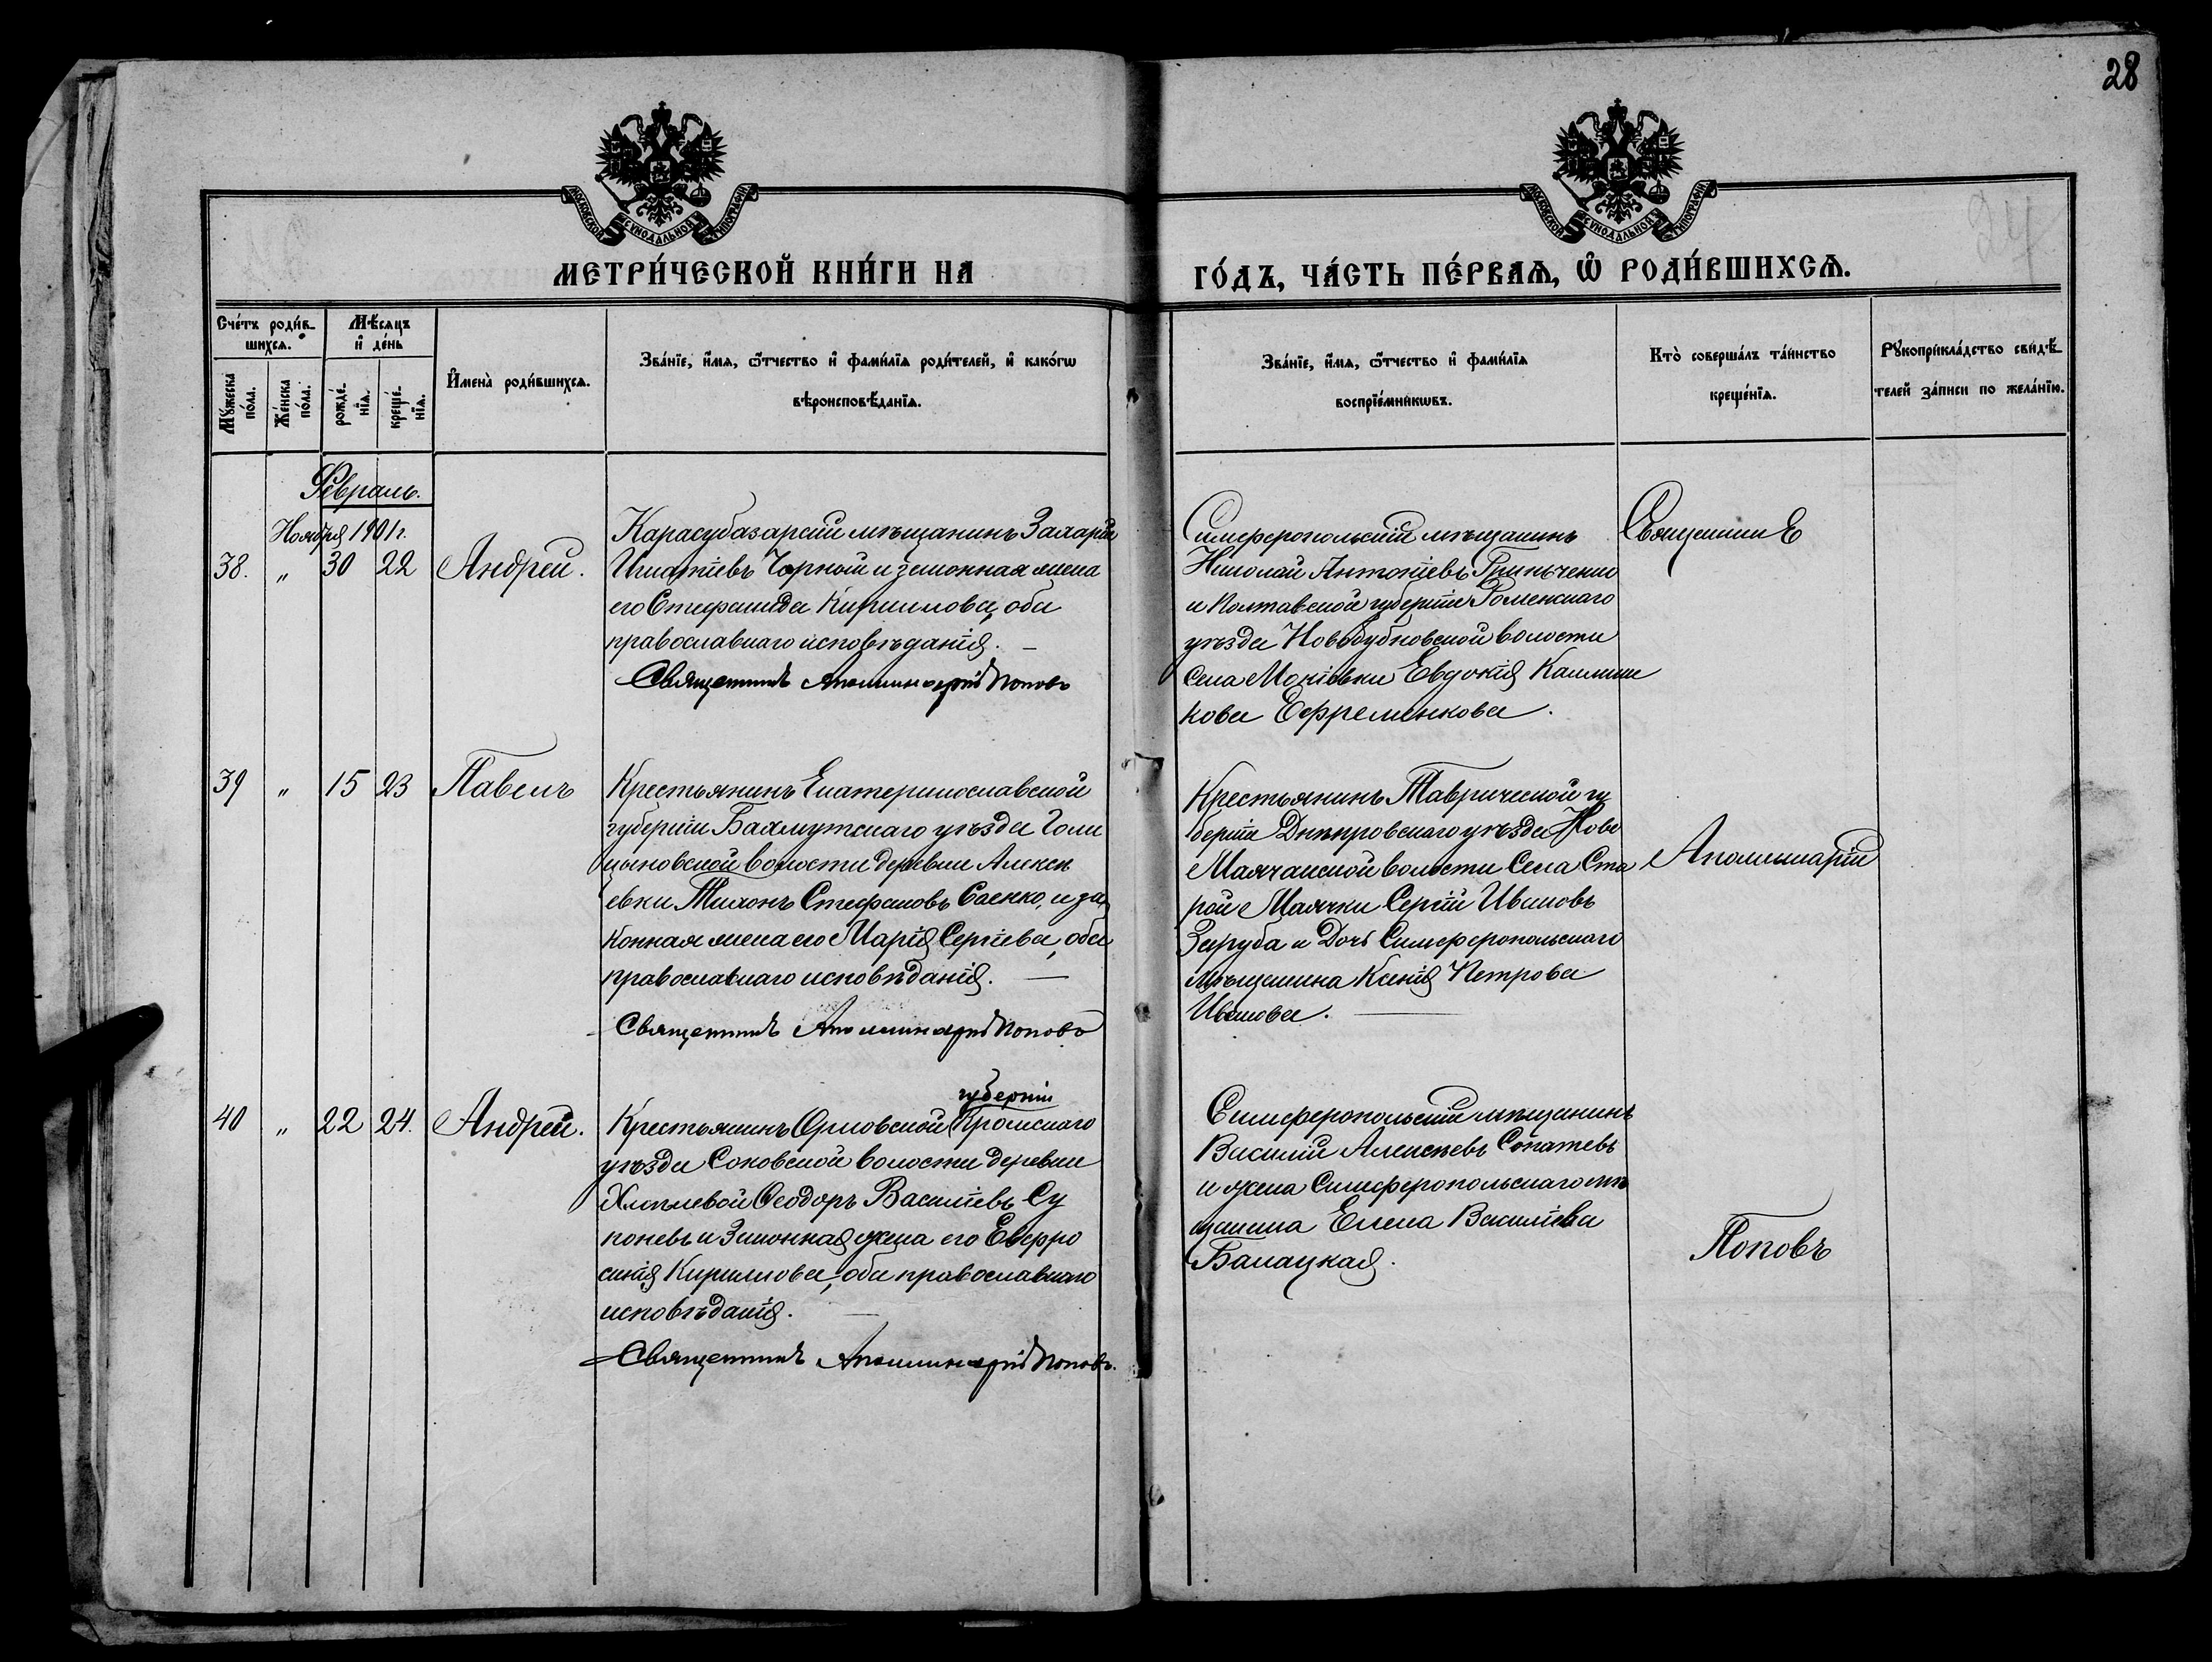 28
МОСКОВСКОЙ СУНОДАЛЬНОЙ ТИПОГРАФІИ
МОСКОВСКОЙ СУНОДАЛЬНОЙ ТИПОГРАФІИ
24
МЕТРИ́ЧЕСКОЙ КНИ́ГИ НА
ГО́ДЪ, ЧА́СТЬ ПЕ́РВАѦ, Ѡ҆ РОДИ́ВШИХСѦ.
Сче́тъ роди́в-
шихсѧ.
Мѣ́сяцъ
и҆ де́нь
Мꙋ́жеска
по́ла.
Же́нска
по́ла.
рожде́-
нїѧ.
креще́-
нїѧ.
И҆мена̀ роди́вшихсѧ.
Зва́нїе, и҆́мѧ, ѻ҆́тчество и҆ фами́лїѧ роди́телей, и҆ како́гѡ
вѣроисповѣ́данїѧ.
Зва́нїе, и҆́мѧ, ѻ҆́тчество и҆ фами́лїѧ
воспрїе́мникѡвъ.
Кто̀ соверша́лъ та́инство
креще́нїѧ.
Рꙋкоприкла́дство свидѣ́-
телей за́писи по жела́нїю.
Февраль.
Ноября 1901 г.
38. „ 30 22 Андрей.
Карасубазарскій мѣщанинъ Захарій
Игнатіевъ Чорной и законная жена
его Стефанида Кириллова, оба
православнаго исповѣданія. —
Священникъ Аполлинарій Поповъ
Симферопольскій мѣщанинъ
Николай Антоніевъ Гринченко
и Полтавской губерніи Роменскаго
уѣзда
волости
села
Евдокія Каллини
кова Ефременкова.
Священникъ
39 „ 15 23 Павелъ
Крестьянинъ Екатеринославской
губерніи Бахмутскаго уѣзда Голи
цыновской волости деревни Алексѣ
евки Тихонъ Стефановъ Саенко, и за
конная жена его Марія Сергіева, оба
православнаго исповѣданія. —
Священникъ Аполлинарій Поповъ
Крестьянинъ Таврической гу
берніи Днѣпровскаго уѣзда Ново
Маячанской волости Села Ста
рой Маячки Сергій Ивановъ
Заруба и Дочь Симферопольскаго
мѣщанина Ксенія Петрова
Иванова. —
Аполлинарій
40 „ 22 24. Андрей.
губерніи
Крестьянинъ Орловской Кромскаго
уѣзда Соковской волости деревни
Хмѣлевой Феодоръ Василіевъ Су
поневъ и Законная жена его Евфро
синія Кириллова, оба православнаго
исповѣданія. —
Священникъ Аполлинарій Поповъ.
Симферопольскій мѣщанинъ
Василій Алексѣевъ Сопатевъ
и жена Симферопольскаго мѣ
щанина Елена Василіева
Балацкая.
Поповъ